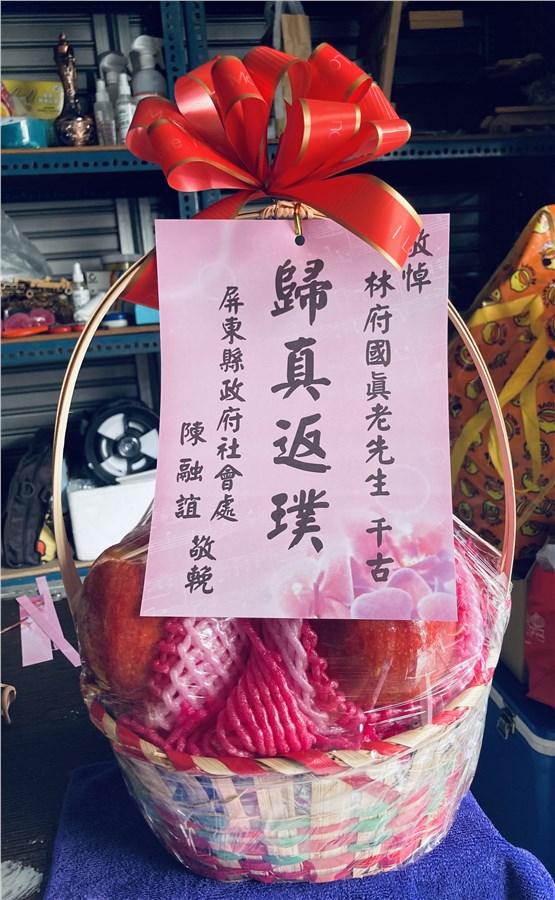 敬悼
林府國眞老先生 千古
歸真返璞
屏東縣政府社會處
陳融誼 敬輓